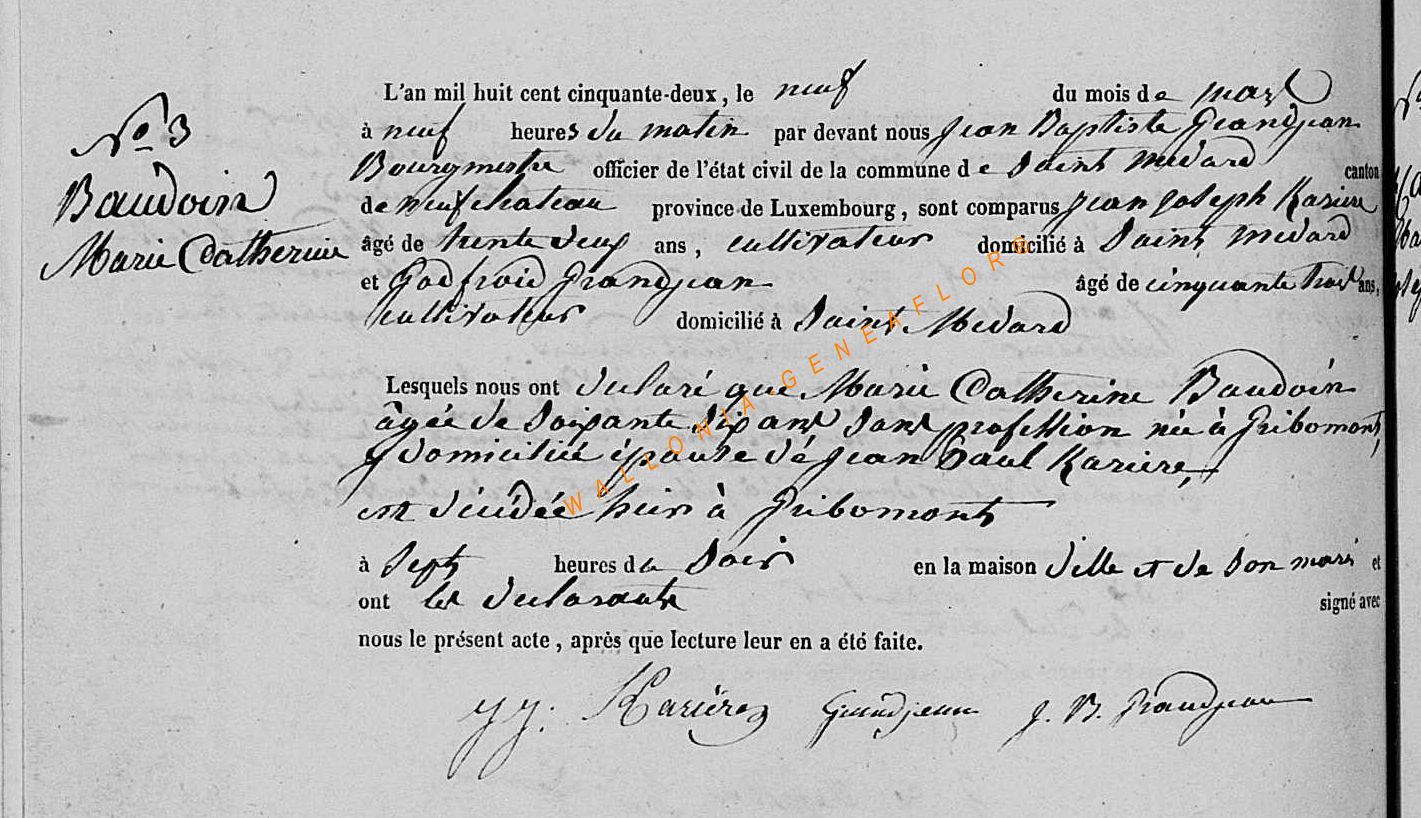 N° 3
Baudoin
Marie Catherine
L'an mil huit cent cinquante-deux, le neuf du mois de mars
à neuf heures du matin par devant nous Jean Baptiste Grandjean
Bourgmestre officier de l'état civil de la commune de Saint Médard canton
de neufchateau province de Luxembourg, sont comparus Jean Joseph Kariere
âgé de trente deux ans, cultivateur domicilié à Saint Médard
et Godfroid Grandjean âgé de cinquante trois ans,
cultivateur domicilié à Saint Medard
Lesquels nous ont déclaré que Marie Catherine Baudoin
âgée de soixante dix ans sans profession née à Gribomont,
y domiciliée épouse de Jean Paul Kariere,
est décédée hier à Gribomont
à sept heures du soir en la maison d'elle et de son mari et
ont les déclarants signé avec
nous le présent acte, après que lecture leur en a été faite.
JJ. Kariere Grandjean J. B. Grandjean
WALLONIA-GENEAFLORE